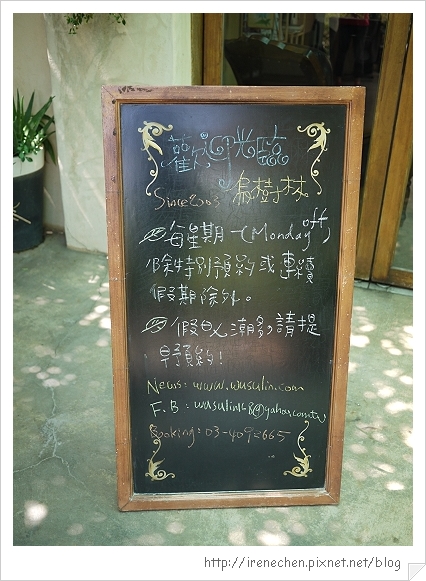 歡迎光臨
Since2003 烏樹林。
每星期一(Monday off)
除特別預約或連續
假期除外。
假日人潮多,請提
早預約!
News: www.wusulin.com
F.B.: wusulin168@yahoo.com.tw
Booking: 03-4092665
http://irenechen.pixnet.net/blog